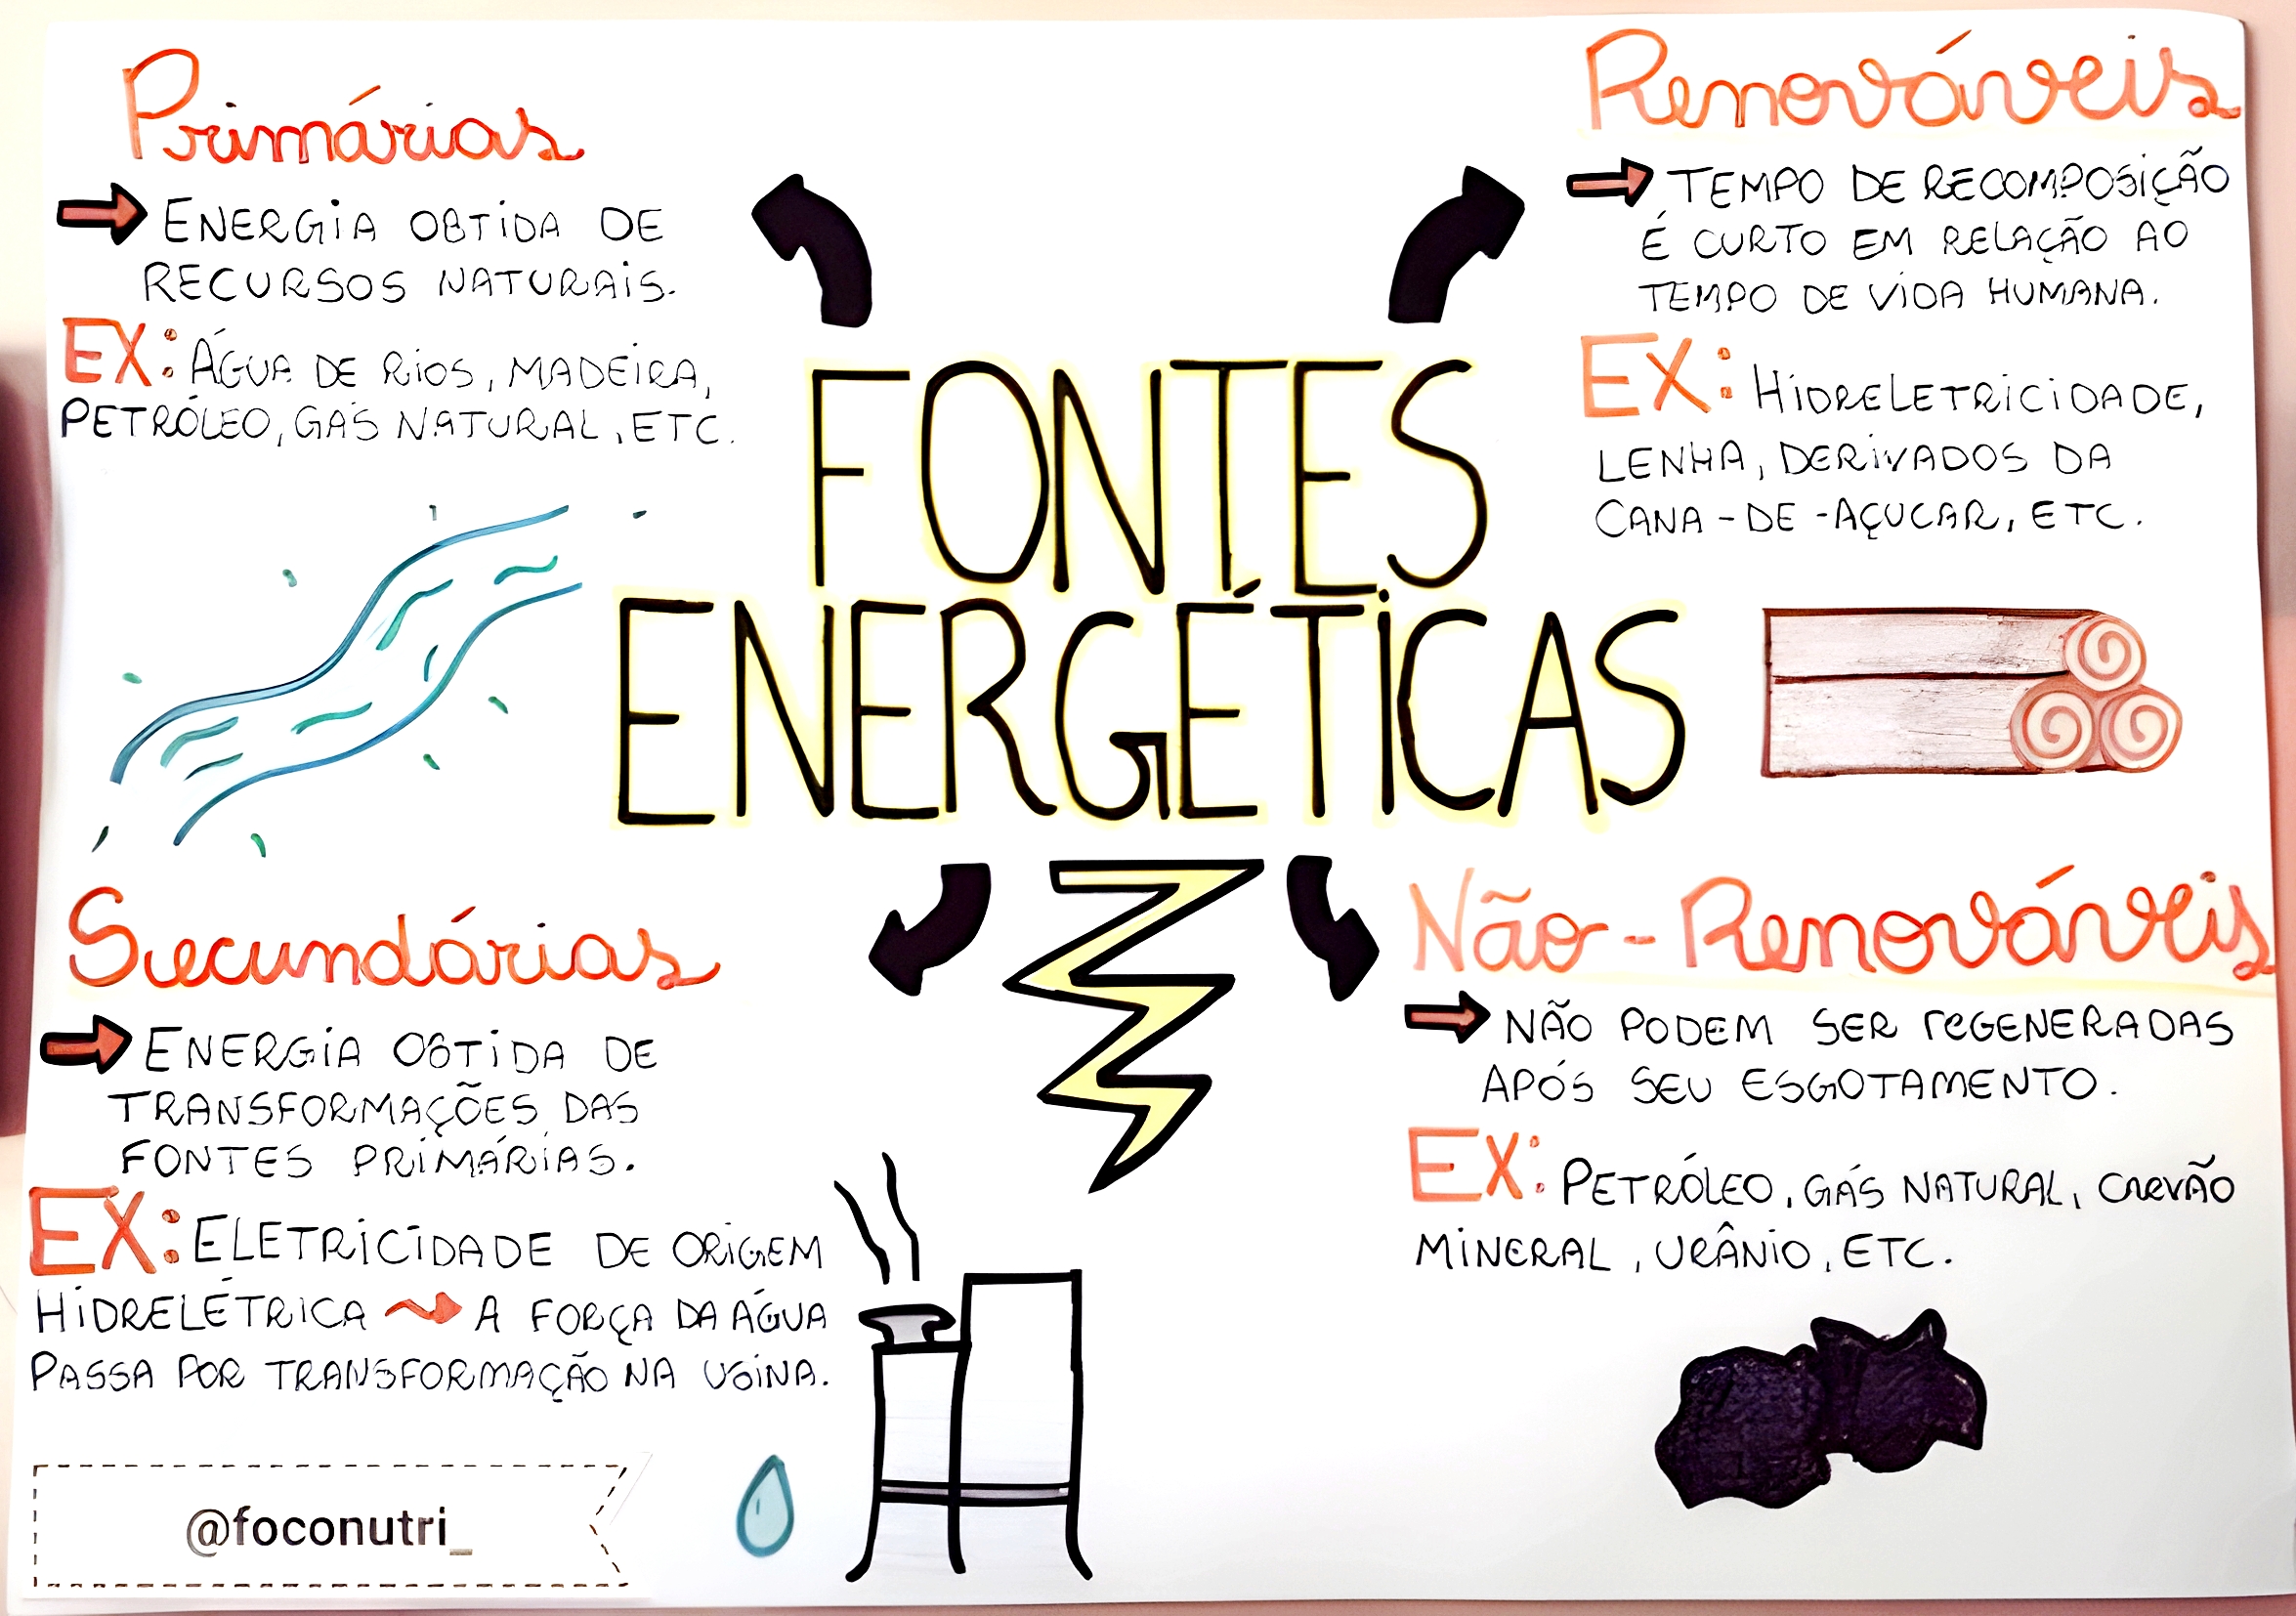 Primárias
ENERGIA OBTIDA DE
RECURSOS NATURAIS.
EX: ÁGUA DE RIOS, MADEIRA,
PETRÓLEO, GÁS NATURAL, ETC.
Renováveis
TEMPO DE RECOMPOSIÇÃO
É CURTO EM RELAÇÃO AO
TEMPO DE VIDA HUMANA.
EX: HIDRELETRICIDADE,
LENHA, DERIVADOS DA
CANA-DE-AÇUCAR, ETC.
FONTES
ENERGÉTICAS
Secundárias
ENERGIA OBTIDA DE
TRANSFORMAÇÕES DAS
FONTES PRIMÁRIAS.
EX: ELETRICIDADE DE ORIGEM
HIDRELÉTRICA A FORÇA DA ÁGUA
PASSA POR TRANSFORMAÇÃO NA USINA.
Não-Renováveis
NÃO PODEM SER REGENERADAS
APÓS SEU ESGOTAMENTO.
EX: PETRÓLEO, GÁS NATURAL, CARVÃO
MINERAL, URÂNIO, ETC.
@foconutri_